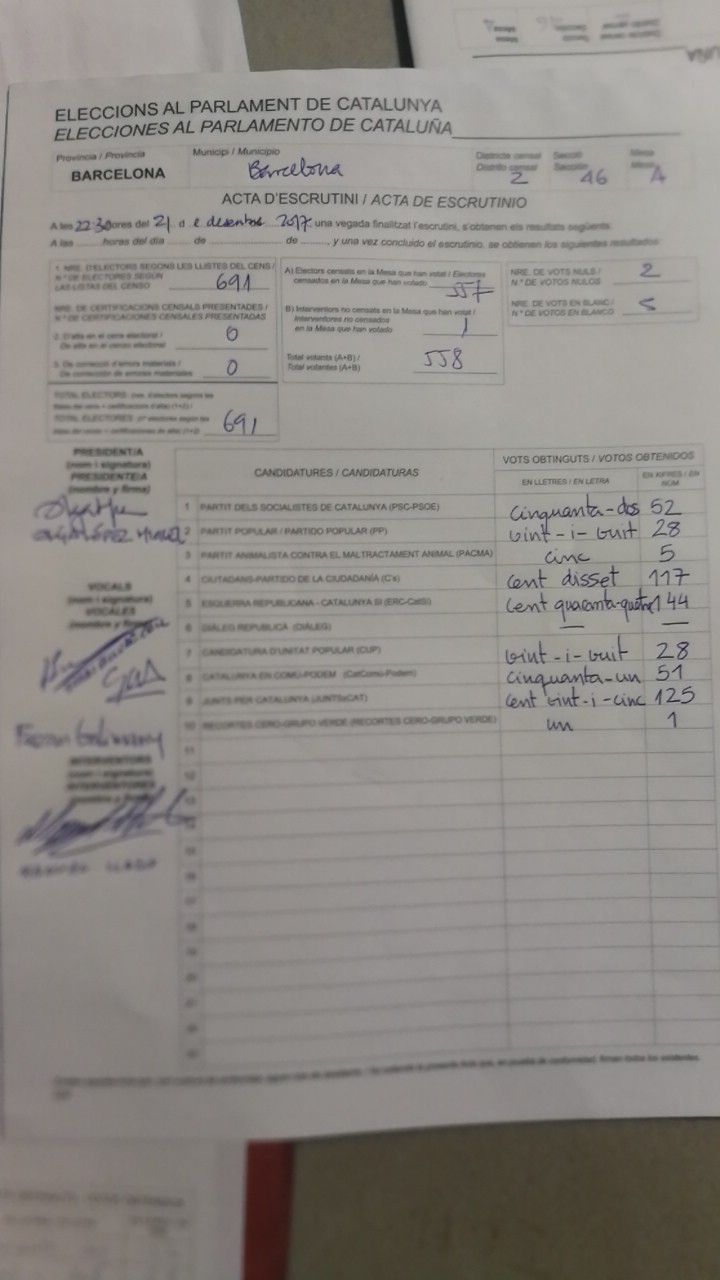 ELECCIONS AL PARLAMENT DE CATALUNYA
ELECCIONES AL PARLAMENTO DE CATALUÑA
Província / Provincia
BARCELONA
Municipi / Municipio
Barcelona
Districte censal
Distrito censal
2
Secció
Sección
46
Mesa
Mesa
A
ACTA D'ESCRUTINI / ACTA DE ESCRUTINIO
A les 22:30 hores del 21 de desembre 2017 una vegada finalitzat l'escrutini, s'obtenen els resultats següents:
A las ........ horas del día ...... de ................ de ........, y una vez concluido el escrutinio, se obtienen los siguientes resultados:
1. NRE. D'ELECTORS SEGONS LES LLISTES DEL CENS /
N.º DE ELECTORES SEGÚN
LAS LISTAS DEL CENSO
691
NRE. DE CERTIFICACIONS CENSALS PRESENTADES /
N.º DE CERTIFICACIONES CENSALES PRESENTADAS
2. D'alta en el cens electoral /
De alta en el censo electoral
0
3. De correcció d'errors materials /
De corrección de errores materiales
0
TOTAL ELECTORS
TOTAL ELECTORES
691
A) Electors censats en la Mesa que han votat / Electores
censados en la Mesa que han votado
557
B) Interventors no censats en la Mesa que han votat /
Interventores no censados
en la Mesa que han votado
1
Total votants (A+B) /
Total votantes (A+B)
558
NRE. DE VOTS NULS /
N.º DE VOTOS NULOS
2
NRE. DE VOTS EN BLANC /
N.º DE VOTOS EN BLANCO
5
PRESIDENT/A
(nom i signatura)
PRESIDENTE/A
(nombre y firma)
VOCALS
(nom i signatura)
VOCALES
(nombre y firma)
INTERVENTORS
(nom i signatura)
INTERVENTORES
(nombre y firma)
CANDIDATURES / CANDIDATURAS
VOTS OBTINGUTS / VOTOS OBTENIDOS
EN LLETRES / EN LETRA
EN XIFRES / EN
NÚM.
1 PARTIT DELS SOCIALISTES DE CATALUNYA (PSC-PSOE) cinquanta-dos 52
2 PARTIT POPULAR / PARTIDO POPULAR (PP) vint-i-vuit 28
3 PARTIT ANIMALISTA CONTRA EL MALTRACTAMENT ANIMAL (PACMA) cinc 5
4 CIUTADANS-PARTIDO DE LA CIUDADANÍA (C's) cent disset 117
5 ESQUERRA REPUBLICANA - CATALUNYA SÍ (ERC-CatSí) cent quaranta-quatre 144
6 DIÀLEG REPUBLICÀ (DIÀLEG) — —
7 CANDIDATURA D'UNITAT POPULAR (CUP) vint-i-vuit 28
8 CATALUNYA EN COMÚ-PODEM (CatComú-Podem) cinquanta-un 51
9 JUNTS PER CATALUNYA (JUNTSxCAT) cent vint-i-cinc 125
10 RECORTES CERO-GRUPO VERDE (RECORTES CERO-GRUPO VERDE) un 1
11
12
13
14
15
16
17
18
19
20
21
22
23